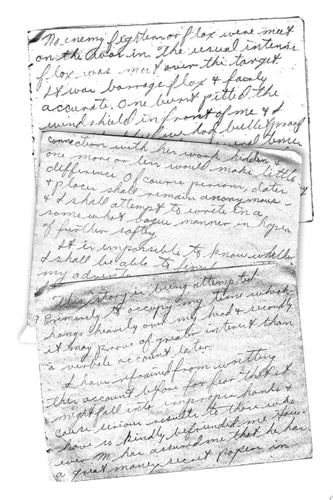 No enemy fighters or flax were meet
on the way in. The usual intense
flax was meet over the target.
It was barrage flax & fairly
accurate. One burst pitted the
windshield in front of me & I
had bullet proof
connection with her work hidden a
one more or less would make little
difference. Of course persons, dates
& places shall remain anonymous
& I shall attempt to write in a
somewhat vague manner in hopes
of further safty.
It is impossible to know whether
I shall be able to
my adventures
This story is being attempted
primarily to occupy my time which
hangs heavily over my head & secondly
it may prove of greater interest than
a verbale account later.
I have refrained from writting
this account before for fear that it
might fall into improper hands &
cause serious results to those who
have so kindly befriended me. How-
ever M. has assured me that he has
a great many secret papers in